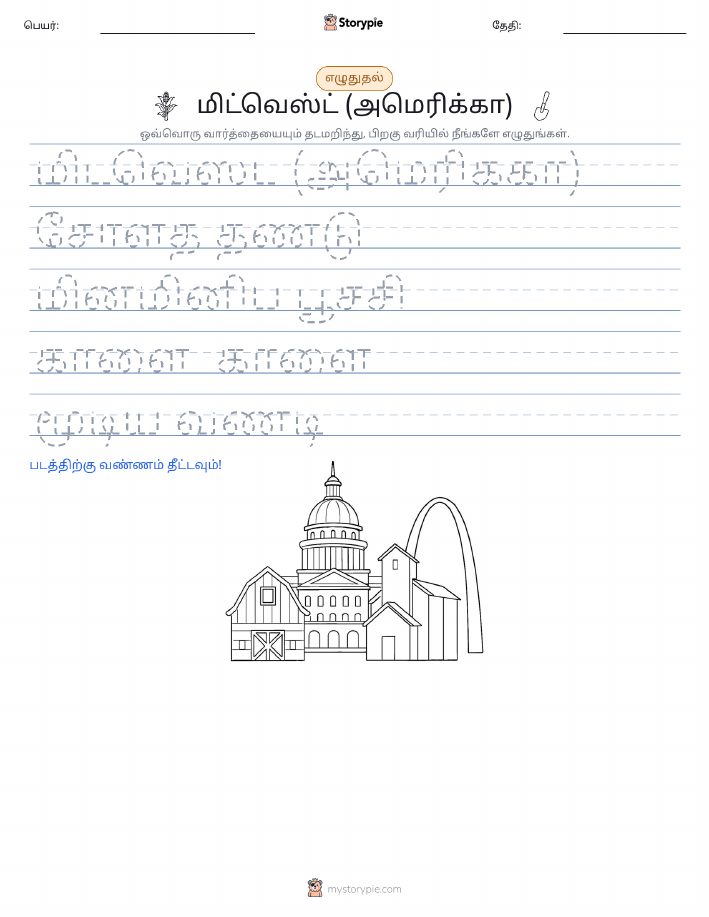 பெயர்:
Storypie
தேதி:
எழுதுதல்
மிட்வெஸ்ட் (அமெரிக்கா)
ஒவ்வொரு வார்த்தையையும் தடமறிந்து, பிறகு வரியில் நீங்களே எழுதுங்கள்.
மிடவெஸட (அமெரிககா)
சோளத தணடு
மினமினிப பூசசி
காளை காளை
மூடிய வணடி
படத்திற்கு வண்ணம் தீட்டவும்!
mystorypie.com